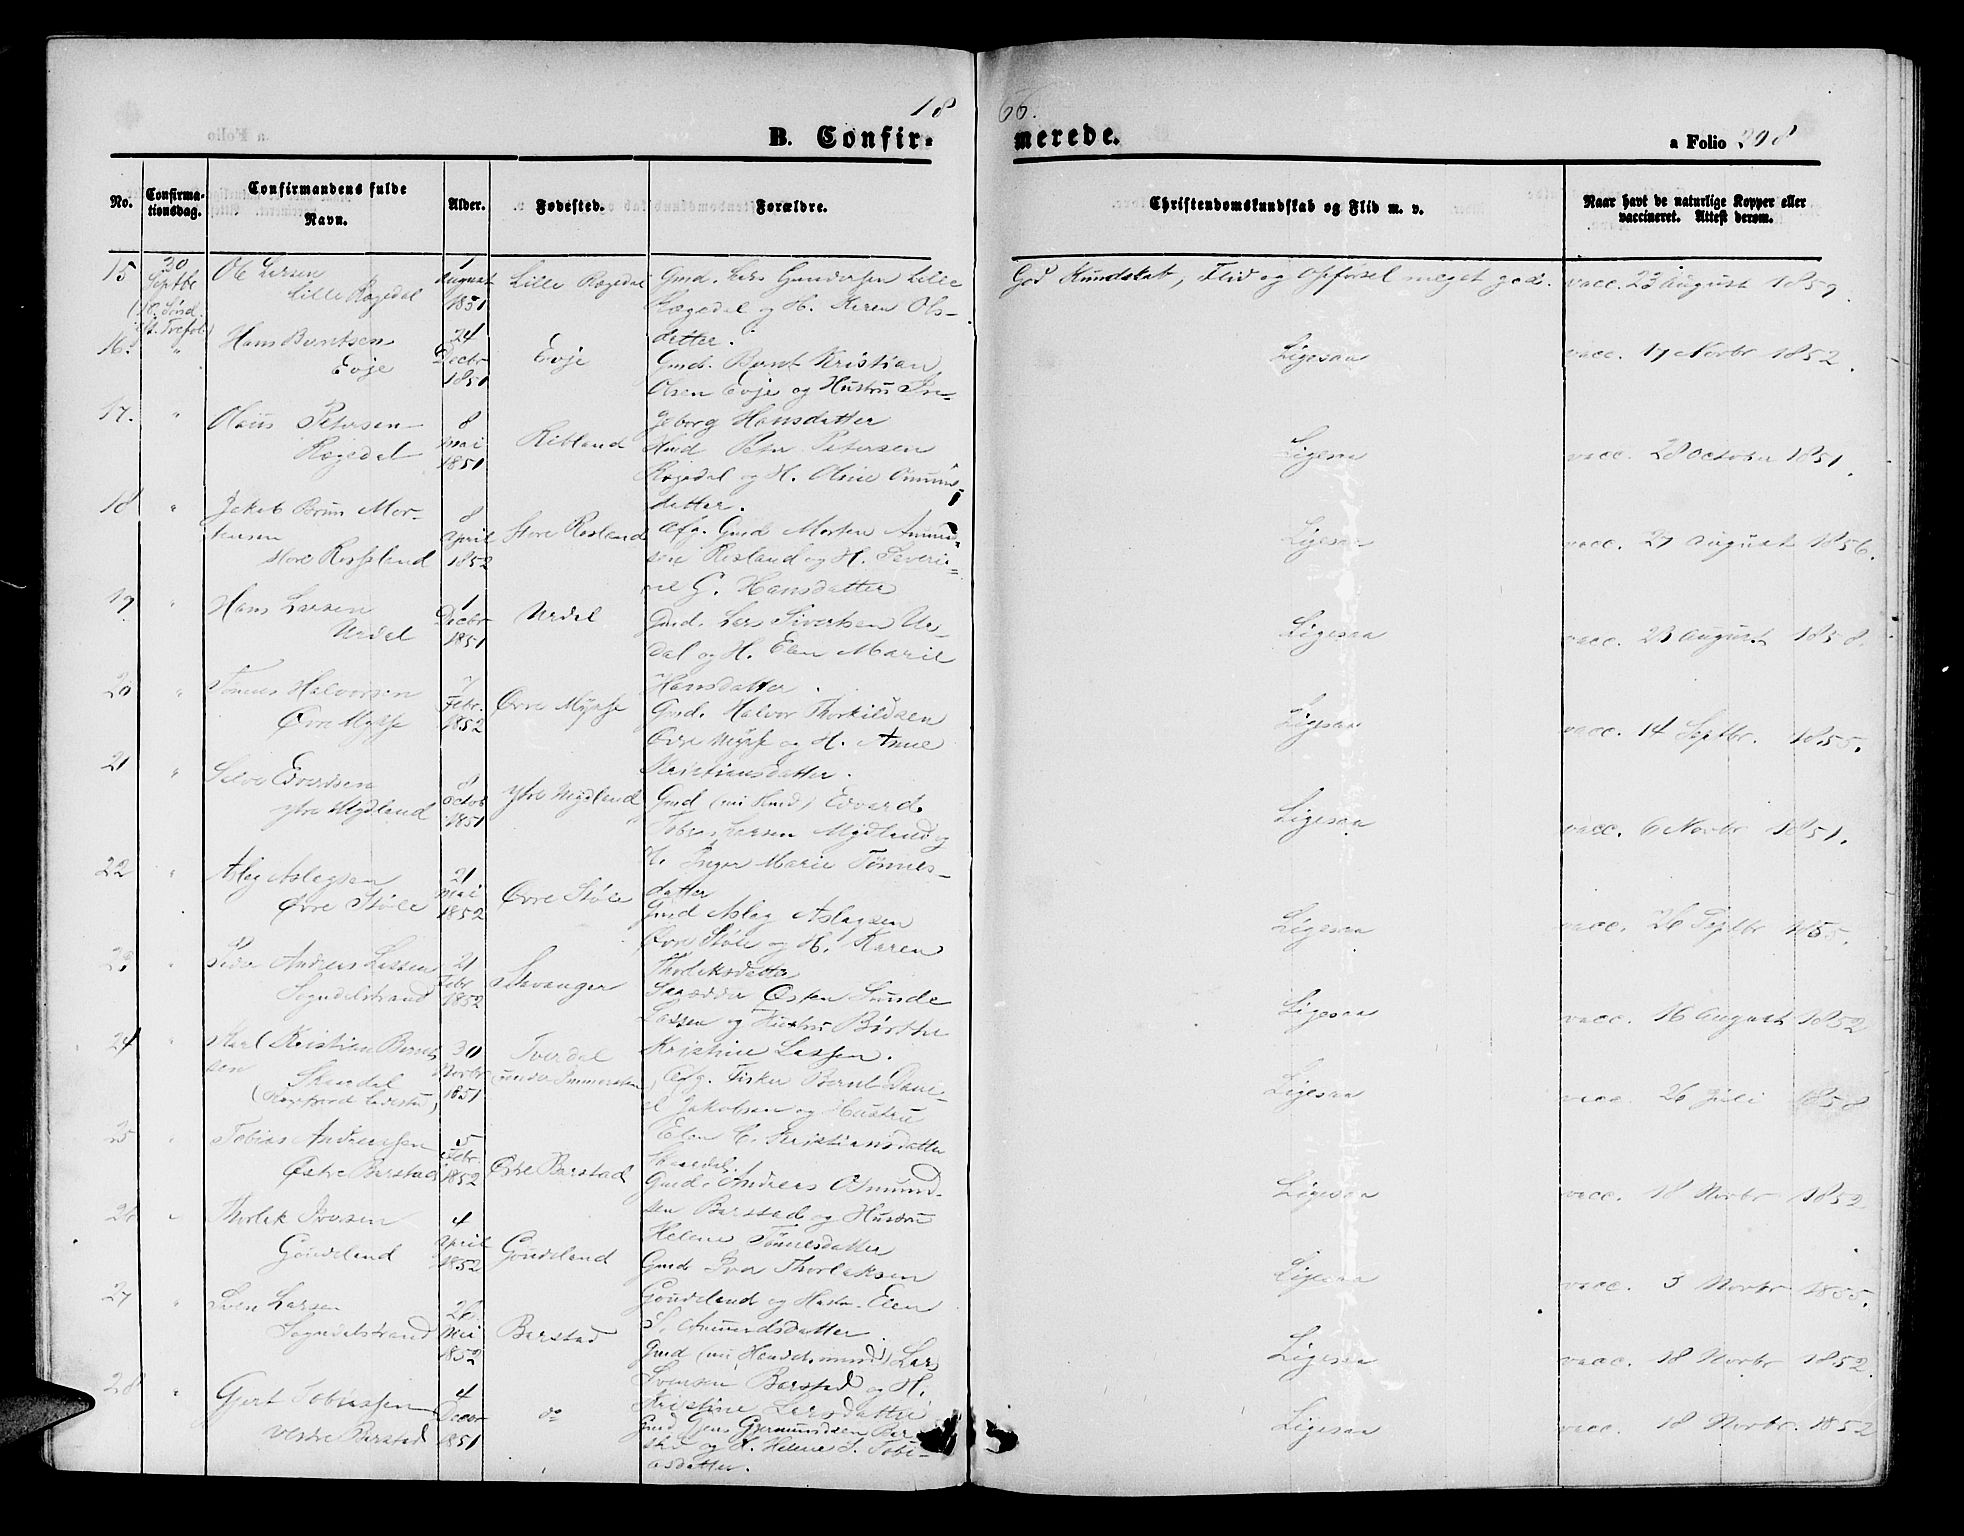 1866.
B. Confirmerede.
a Folio 298
No.
Confirma-
tionsdag.
Confirmandens fulde
Navn.
Alder.
Fødested.
Forældre.
Christendomskundskab og Flid m. v.
Naar havt de naturlige Kopper eller
vaccineret. Attest derom.
15
30
Septbr
Ole Larsen
Lille Røgedal
1
August
1851
Lille Røgedal
Gmd. Lars Gundersen Lille
Røgedal og H. Karen Ols-
datter.
God Kundskab, Flid og Opførsel meget god.
vacc. 23 August 1859.
16.
"
Hans Berntsen
Evje
24
Decbr
1851
Evje
Gmd. Bernt Kristian
Olsen Evje og Hustru In-
geborg Hansdatter
Ligesaa
vacc. 17 Novbr 1852.
17.
"
Olaus Petersen
Røgedal
8
Mai
1851
Ribland
Hmd Peter Petersen
Røgedal og H. Oline Omunds-
datter.
Ligesaa
vacc. 28 October 1851.
18
"
Jakob Bruun Mor-
tensen
store Rossland
8
April
1852
Store Rosland
Afg. Gmd Morten Amund-
sen Rosland og H. Severi-
ne G. Hansdatter
Ligesaa
vacc. 27 August 1856.
19
"
Hans Larsen
Urdal
1
Decbr
1851
Urdal
Gmd. Lars Sivertsen Ur-
dal og H. Elen Marie
Hansdatter.
Ligesaa
vacc. 23 August 1858.
20
"
Tønnes Halvorsen
Øvre Mysse
7
Febr.
1852
Øvre Mysse
Gmd. Halvor Thorkildsen
Øvre Mysse og H. Anne
Kristiansdatter.
Ligesaa
vacc. 14 Septbr. 1855.
21
"
Edvardsen
ytre Mydland
8
Octob
1851
ytre Mydland
Gmd (nu Hmd) Edvard
Tobias Larsen Mydland og
H. Inger Marie Tønnes-
datter
Ligesaa
vacc. 6 Novbr 1851.
22
"
Aslag Aslagsen
Øvre Støle
21
Mai
1852
Øvre Støle
Gmd Aslag Aslagsen
Øvre Støle og H. Karen
Thorlaksdatter
Ligesaa
vacc. 26 Septbr 1855.
23
"
Peder Andreas Lassen
Sogndalstrand
21
Febr
1852
Stavanger
Skrædder Østen Sunde
Lassen og Hustru Børthe
Kristine Lassen.
Ligesaa
vacc. 16 August 1852
24
"
Karl Kristian Bernt-
sen
Skaadal
30
Novbr
1851
Tverdal
Afg. Fisker Bernt Dani-
el Jakobsen og Hustru
Elen C. Kristiansdatter
Skaadal.
Ligesaa
vacc. 26 Juli 1858
25
"
Tobias Andreassen
Østre Barstad
5
Febr.
1852
Østre Barstad
Gmd. Andreas Osmund-
sen Barstad og Hustru
Helene Tønnesdatter
Ligesaa
vacc. 18 Novbr 1852.
26
"
Thorlak Iversen
Goudeland
4
April
1852
Goudeland
Gmd Iver Thorlaksen
Goudeland og Hustru Elen
S. Amundsdatter.
Ligesaa
vacc. 3 Novbr 1855.
27
"
Sven Larsen
Sogndalstrand
26
Mai
1852
Barstad
Gmd (nu Handelsmand) Lars
Svensen Barstad og H.
Kristine Larsdatter
Ligesaa
vacc. 18 Novbr 1852.
28
"
Gjert Tobiassen
Vestre Barstad
4
Decbr
1851
do
Gmd Jens Gjermundsen Bar-
stad og H. Helene S. Tobi-
asdatter.
Ligesaa
vacc. 18 Novbr. 1852